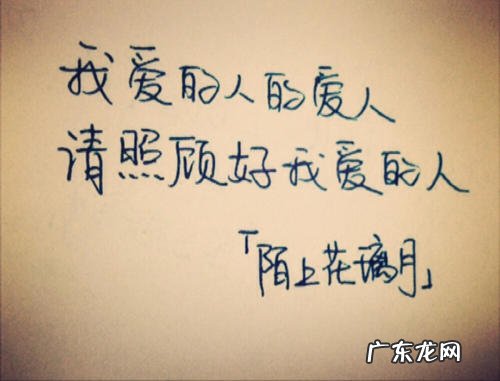 我爱的人的爱人
请照顾好我爱的人
「陌上花璃月」
广东龙网